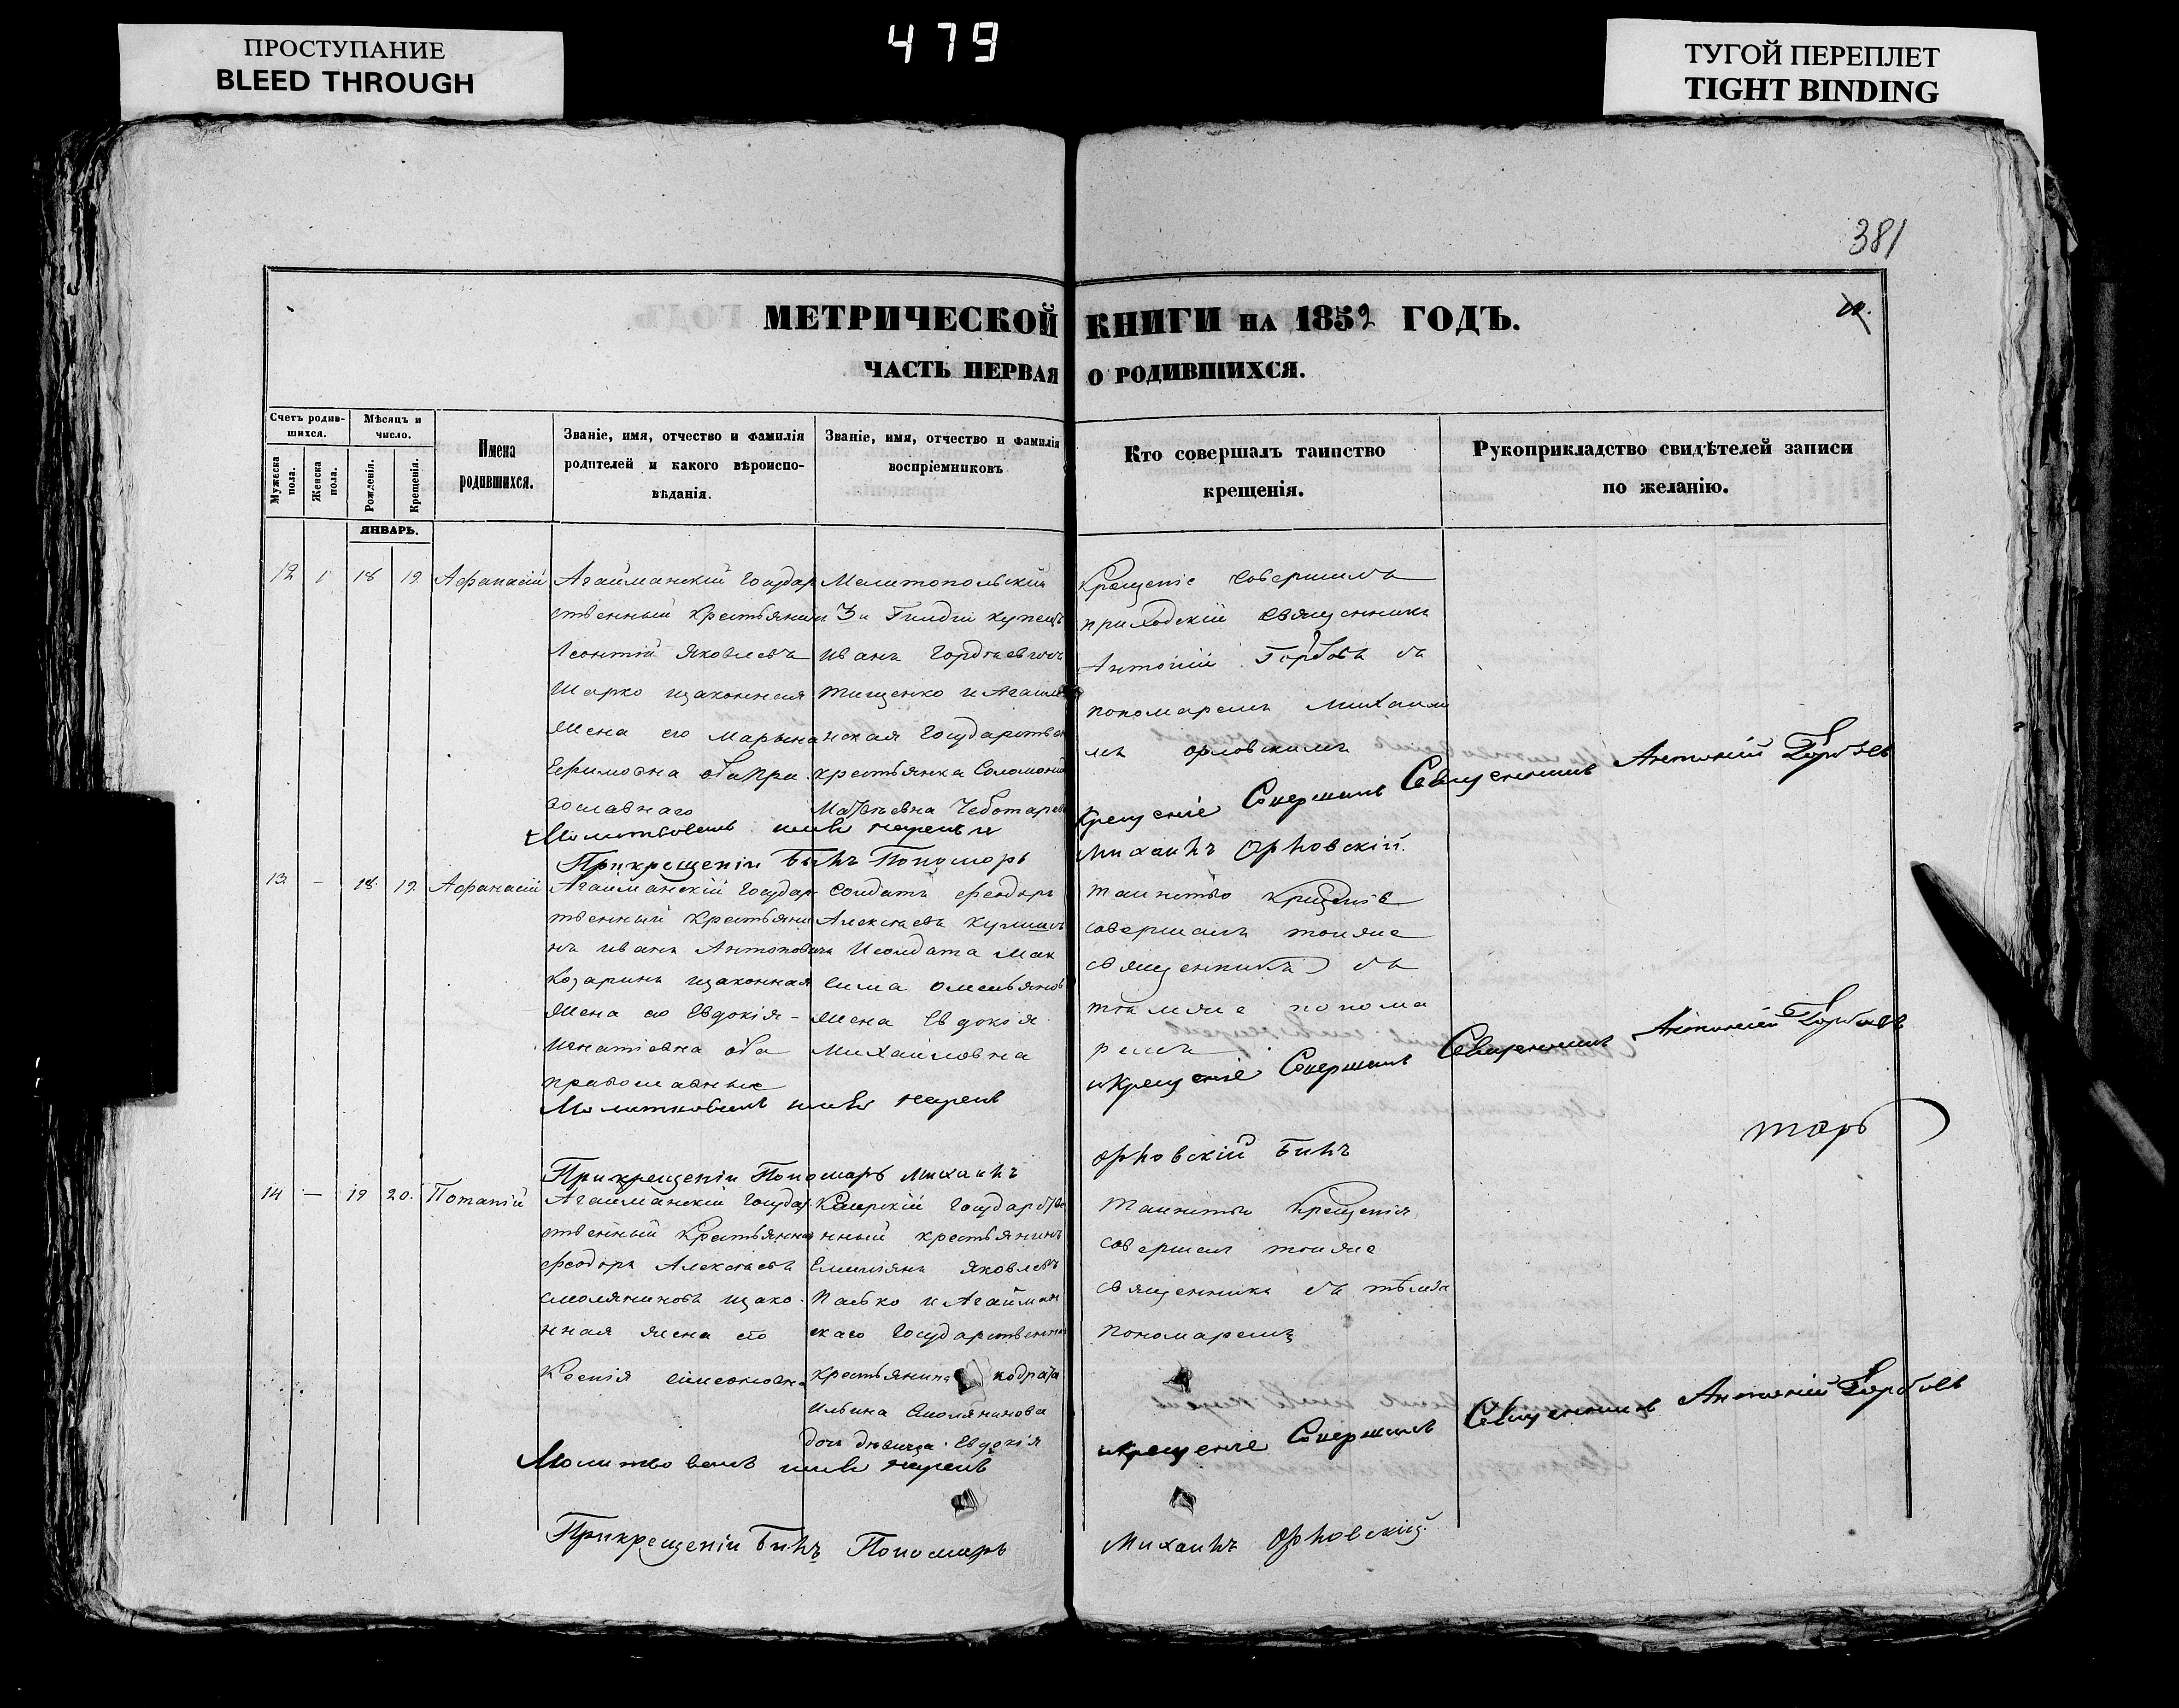 ПРОСТУПАНИЕ
BLEED THROUGH
479
ТУГОЙ ПЕРЕПЛЕТ
TIGHT BINDING
381
МЕТРИЧЕСКОЙ КНИГИ НА 1852 ГОДЪ.
ЧАСТЬ ПЕРВАЯ О РОДИВШИХСЯ.
Счетъ родив-
шихся.
Мужеска пола.
Женска пола.
Мѣсяцъ и
число.
Рожденія.
Крещенія.
Имена
родившихся.
Званіе, имя, отчество и фамилія
родителей и какого вѣроиспо-
вѣданія.
Званіе, имя, отчество и фамилія
воспріемниковъ
Кто совершалъ таинство
крещенія.
Рукоприкладство свидѣтелей записи
по желанію.
ЯНВАРЬ.
12 18 19 Афанасій
Агайманскій Государ
ственный Крестьянин
Леонтій Яковлевъ
Шарко изаконная
жена его Марьяна
Ефимовна оба пра
вославнаго
Мелитопольскій
3й Гилдіи купецъ
Иванъ Гордѣевичъ
Тищенко и Агайма
нская Государствен
крестьянка Соломонид
Матвѣевна Чеботарев
Крещеніе Совершилъ
приходскій Священникъ
Антоній Горбовъ съ
пономаремъ Михаи
ломъ Орловскимъ
Молитвовалъ имя нарекъ и
Крещеніе Совершилъ Священникъ Антоній Горбовъ
При крещеніи Билъ Пономарь
Михаилъ Орловскій.
13 – 18. 19. Афанасій
Агайманскій Государ
ственный Крестьяни
нъ Иванъ Антоновичъ
Козаринъ изаконная
жена его Евдокія –
Игнатіевна оба
православные
Солдатъ Феодоръ
Алексѣевъ
и Солдата Мак
сима Омельянов
жена Евдокія
Михайловна
Таинство Крещенія
совершалъ тотже
священникъ съ
тѣмже понома
ремъ
Молитвовалъ имя нарекъ
и Крещеніе Совершилъ Священникъ Антоній Горбовъ
При крещеніи Пономарь Михаилъ
Орловскій Билъ
14 — 19 20. Потапій
Агайманскій Государ
ственный Крестьянин
Феодоръ Алексѣевъ
Смоляниновъ изако
нная жена его
Ксенія Симеоновна
Каирскій Государстве
нный крестьянинъ
Емиліянъ Яковлевъ
Палько и Агайман
скаго Государственна
крестьянина кодрата
Ильина Смолянинова
дочь дѣвица Евдокія
Таинство Крещенія
совершал тотже
священникъ съ тѣмже
пономаремъ
Молитвовалъ имя нарекъ
и Крещеніе Совершилъ Священникъ Антоній Горбовъ
При крещеніи Билъ Пономарь
Михаилъ Орловскій.